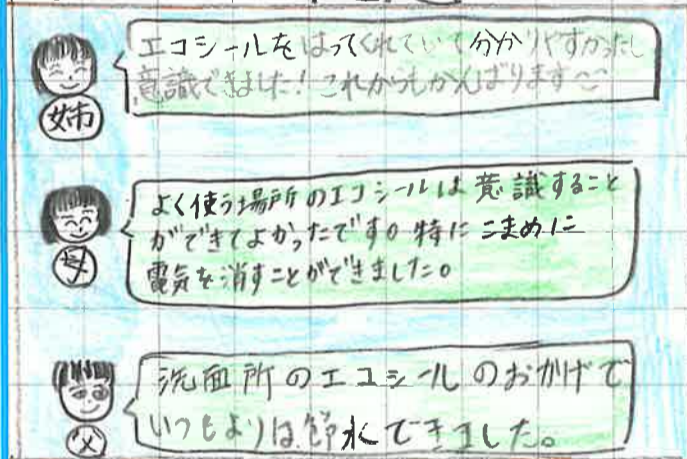 エコシールをはってくれていて分かりやすかったし
意識できました!これからもがんばります
姉
よく使う場所のエコシールは意識すること
ができてよかったです。特にこまめに
電気を消すことができました。
母
洗面所のエコシールのおかげで
いつもよりは節水できました。
父